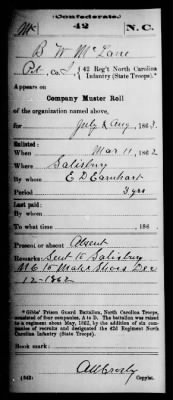 (Confederate.)
Mc 42 N.C.
B W McLane
Pvt, Co. I, 42 Reg't North Carolina
Infantry (State Troops).*
Appears on
Company Muster Roll
of the organization named above,
for July & Aug, 1863.
Enlisted:
When Mar 11, 1862
Where Salisbury
By whom E D Earnhart
Period 3 yrs
Last paid:
By whom
To what time , 186
Present or absent Absent
Remarks: Sent to Salisbury
N C to Make Shoes Dec
12-1862
*Gibbs' Prison Guard Battalion, North Carolina Troops,
consisted of four companies, A to D. The battalion was raised
to a regiment about May, 1862, by the addition of six com-
panies of recruits and designated the 42d Regiment North
Carolina Infantry (State Troops).
Book mark:
(642)
Copyist.